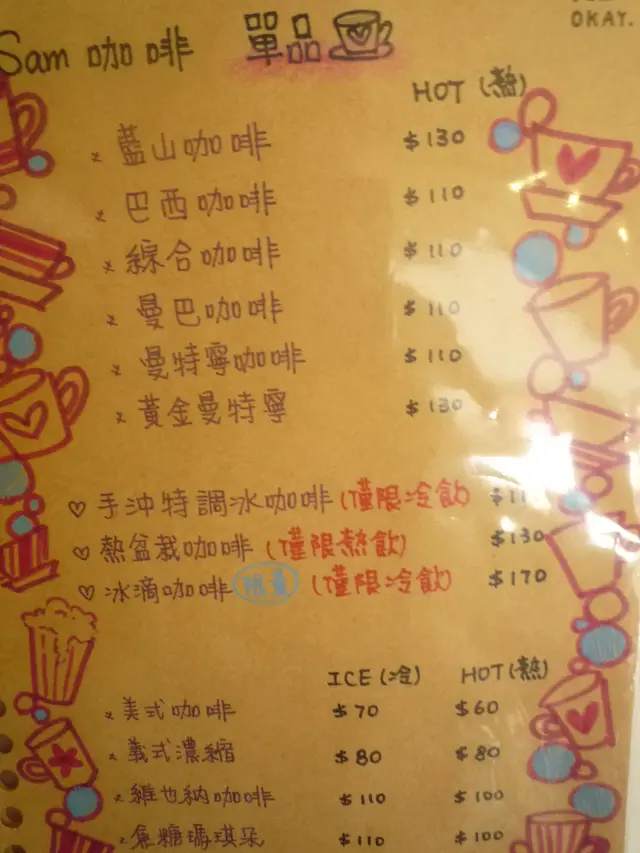 OKAY.
Sam 咖啡 單品
HOT (熱)
× 藍山咖啡 $130
× 巴西咖啡 $110
× 綜合咖啡 $110
× 曼巴咖啡 $110
× 曼特寧咖啡 $110
× 黃金曼特寧 $130
♡ 手沖特調冰咖啡 (僅限冷飲)
♡ 熱盆栽咖啡 (僅限熱飲) $130
♡ 冰滴咖啡 限量 (僅限冷飲) $170
ICE (冷) HOT (熱)
× 美式咖啡 $70 $60
× 義式濃縮 $80 $80
× 維也納咖啡 $110 $100
× 焦糖瑪琪朵 $110 $100